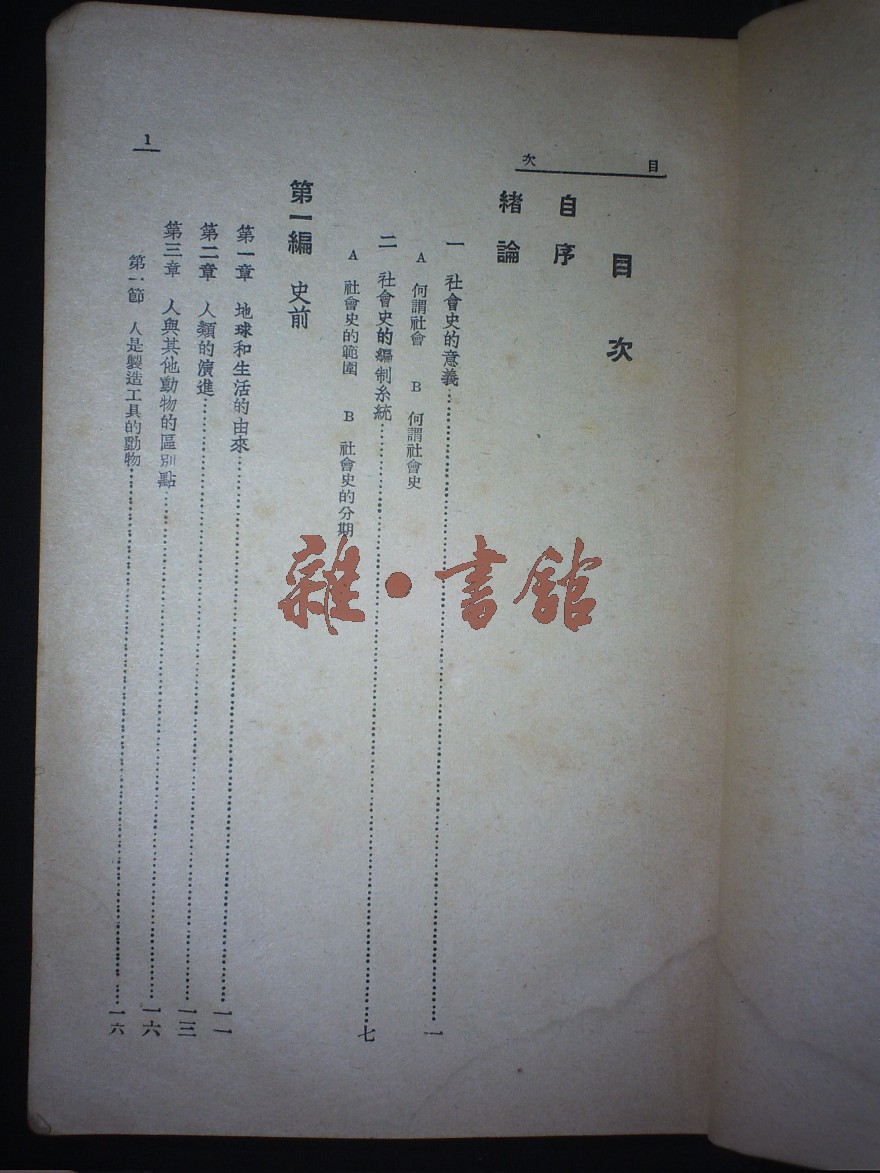 目次
1
目次
自序
緒論
一 社會史的意義……一
A 何謂社會 B 何謂社會史
二 社會史的編制系統……七
A 社會史的範圍 B 社會史的分期
第一編 史前
第一章 地球和生活的由來……一一
第二章 人類的演進……一三
第三章 人與其他動物的區別點……一六
第一節 人是製造工具的動物……一六
雜·書館